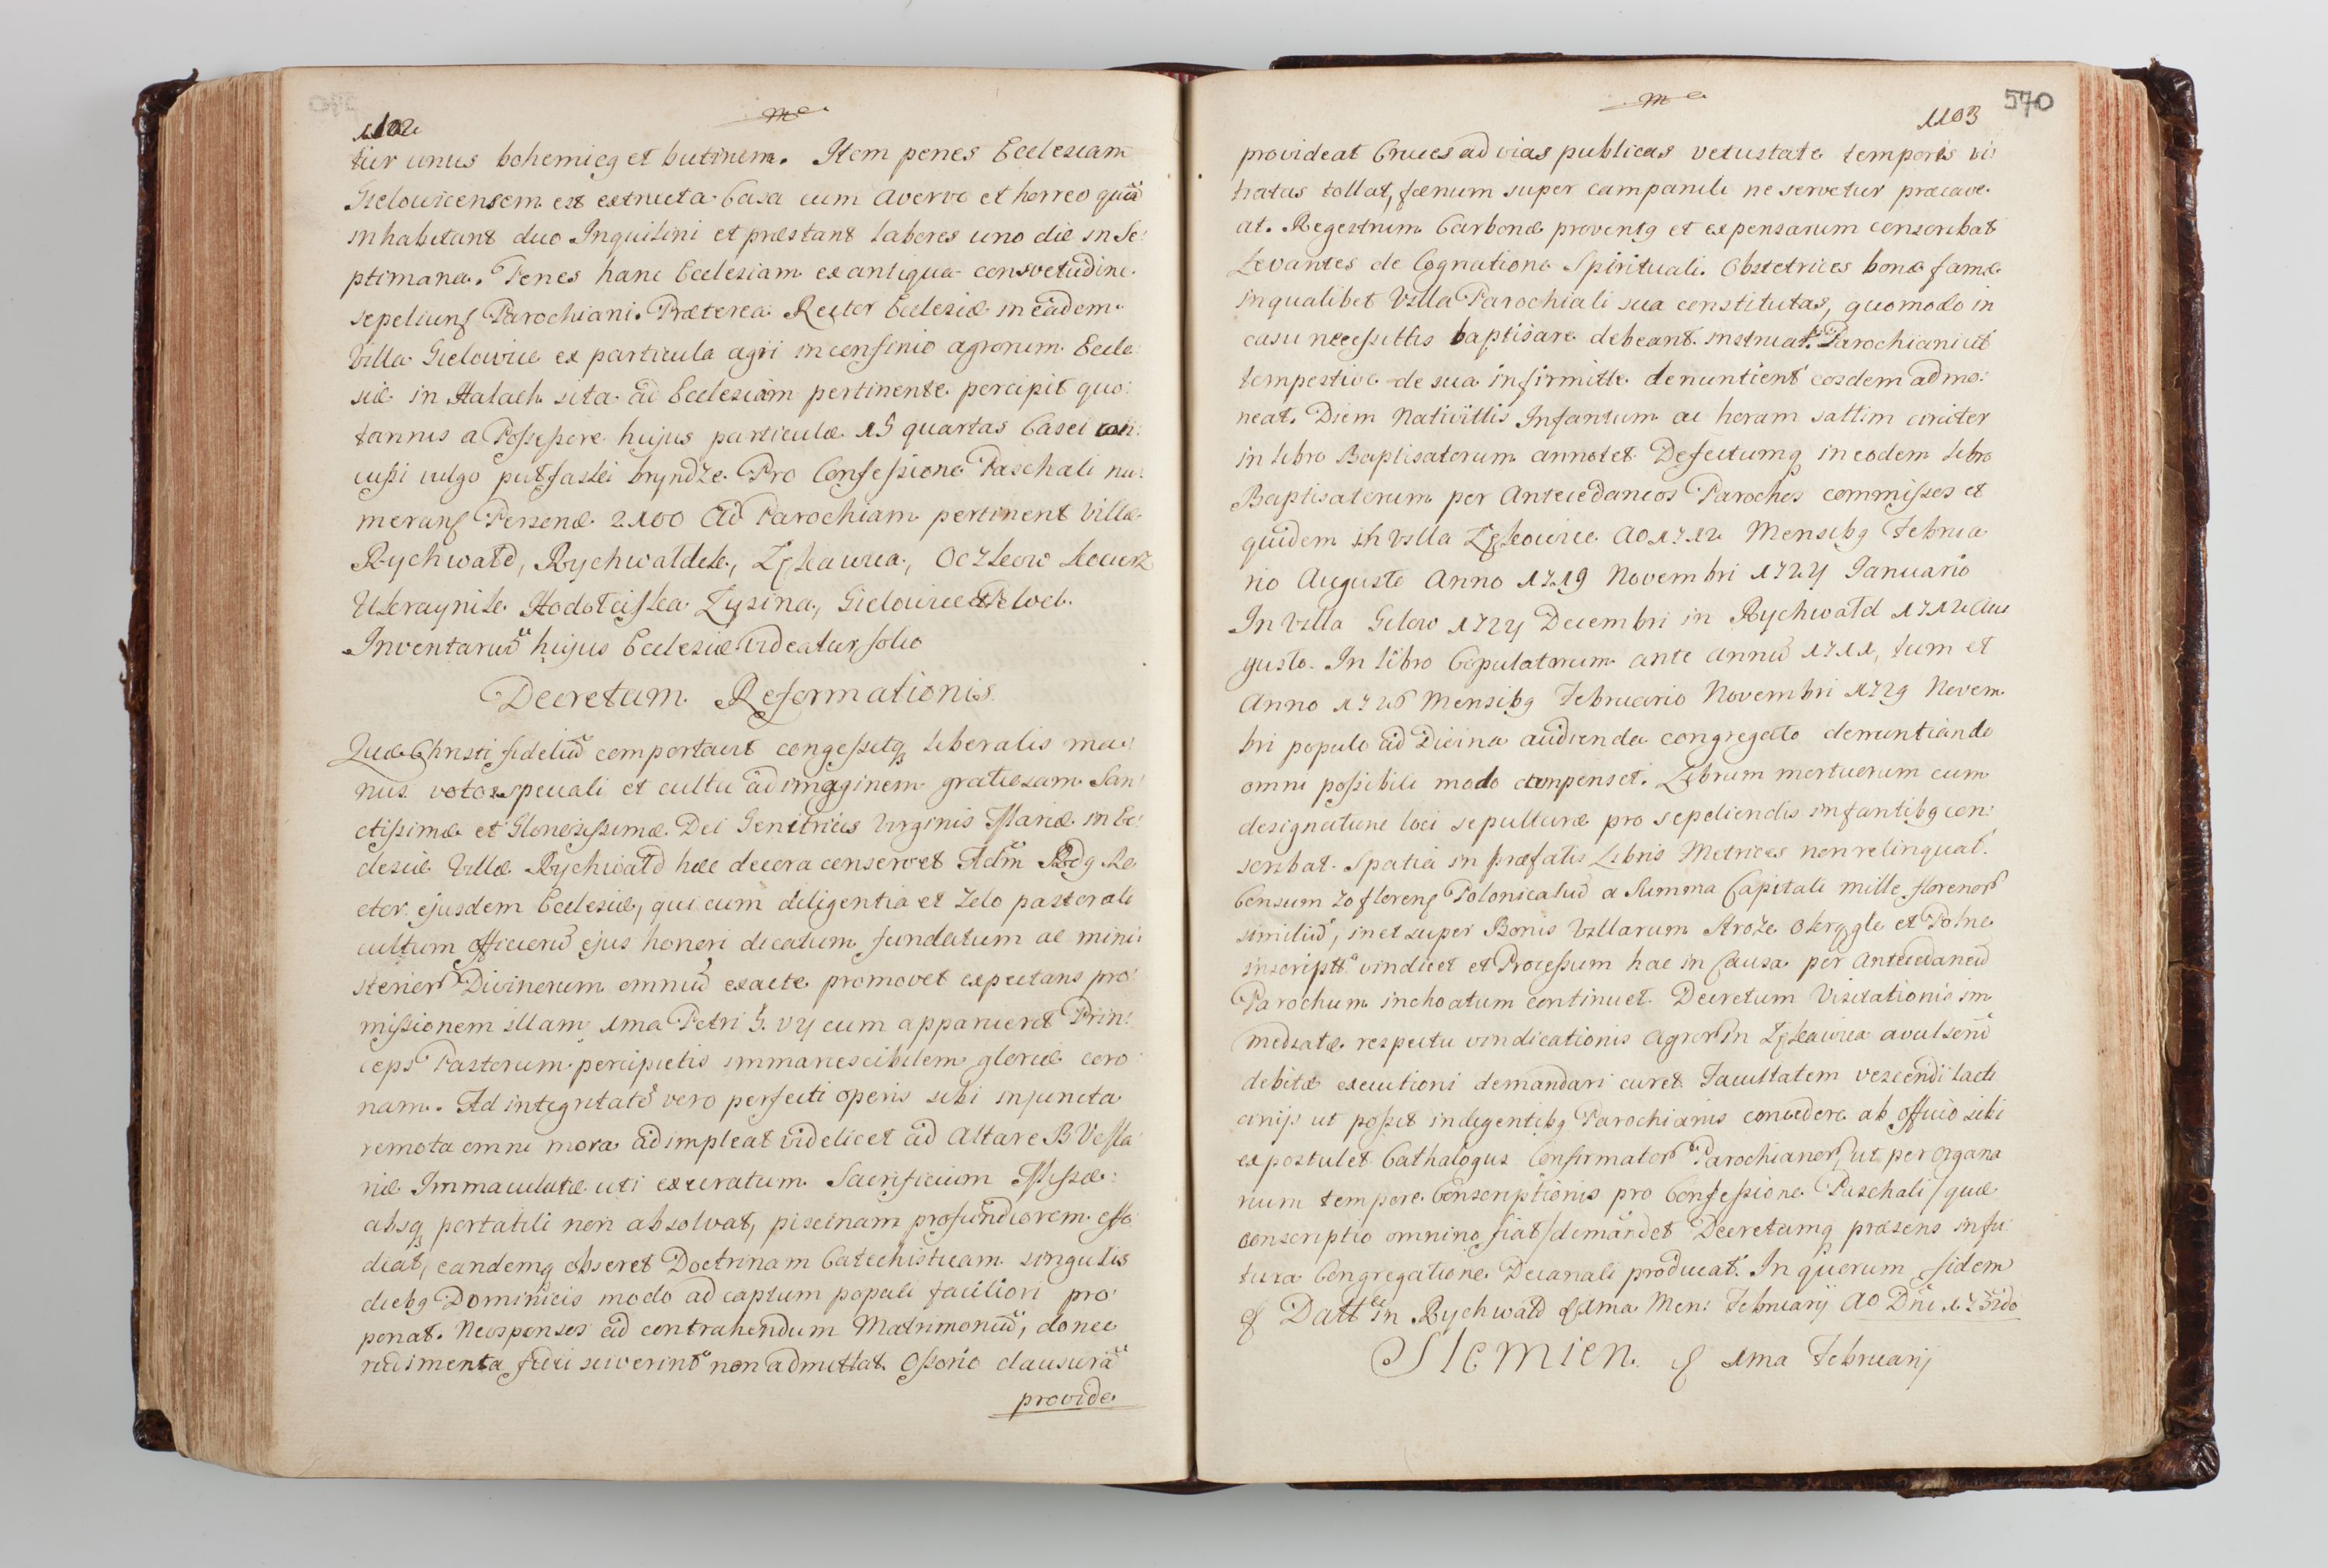 1102
tur unus bohemicq et butinum. Item penes Ecclesiam
Gielovicensem est extructa Casa cum Acervo et horreo quã
inhabitant duo Inquilini et præstant labores uno die in Se:
ptimana. Penes hanc Ecclesiam ex antiqua consvetudine
sepeliunt Parochiani. Præterea Rector Ecclesiæ in eadem
Villa Gielovice ex particula agri in confinio agrorum Eccle:
siæ in Halach sita ad Ecclesiam pertinente percipit quo:
tannis a Possessore hujus particulæ 15 quartas Casei con:
cussi vulgo putfaski bryndze. Pro Confessione Paschali nu:
merant Personæ 2100 Ad Parochiam pertinent Villæ
Rychwald, Rychwaldek, Łękawica, Oczkow Kocierz
Ukraynik Łysina, Gielowice
Inventariũ hujus Ecclesiæ videatur folio
Decretum Reformationis
Quæ Christi fideliũ comportavit congessitq liberalis ma:
nus voto speciali et cultu ad imaginem gratiosam San:
ctissimæ et Gloriosissimæ Dei Genitricis Virginis Mariæ in Ec:
clesiæ Villæ Rychwald hæc decora conservet Adm Rdq Re
ctor ejusdem Ecclesiæ, qui cum diligentia et zelo pastorali
cultum officiorũ ejus honori dicatum fundatum ac mini:
sterior Divinorum omniũ exacte promovet expectans pro:
missionem illam 1ma Petri 5. cum apparuerit Prin:
ceps Pastorum percipietis immarcescibilem gloriæ coro:
nam. Ad integritatẽ vero perfecti operis sibi injuncta
remota omni mora adimpleat videlicet ad Altare B V Ma:
riæ Immaculatæ uti execratum Sacrificium Missæ:
absq portatili non absolvat, piscinam profundiorem effo:
diat, eandemq obseret Doctrinam Catechisticam singulis
diebq Dominicis modo ad captum populi faciliori pro:
ponat. Neosponsos ad contrahendum Matrimoniũ, donec
rudimenta fidei sciverint non admittat Ossorio clausurã
provide
1103
570
provideat Cruces ad vias publicas vetustate temporis vi:
tiatas tollat, fœnum super campanili ne servetur præcave:
at. Regestrum Carbonæ proventq et expensarum conscribat
Levantes de Cognatione Spirituali. Obstetrices bonæ famæ
in qualibet Villa Parochiali sua constitutas, quomodo in
casu necessittis baptisare debeant instruat. Parochiani ut
tempestive de sua infirmitte denuntient eosdem admo:
neat. Diem Nativittis Infantum ac horam saltim circiter
in Libro Baptisatorum annotet Defectumq in eodem Libro
Baptisatorum per Antecedaneos Parochos commissos et
quidem in Villa Łękowice Ao 1712 Mensibq Februa
rio Augusto Anno 1719 Novembri 1724 Ianuario
In Villa Gilow 1724 Decembri in Rychwald 1712 Au
gusto. In Libro Copulatorum ante Annũ 1711, tum et
Anno 1726 Mensibq Februario Novembri 1729 Novem
bri populo ad Divina audienda congregato denuntiando
omni possibili modo compenset. Librum mortuorum cum
designatione loci sepulturæ pro sepeliendis infantibq con:
scribat. Spatia in præfatis Libris Metrices non relinquat.
Censum 70 floren Polonicaliũ a Summa Capitali mille florenor
similiũ, in et super Bonis Villarum Stroze et Polne
inscriptt vindicet et Processum hac in Causa per Antecedaneũ
Parochum inchoatum continuet. Decretum Visitationis im
mediatæ respectu vindicationis Agror in Łękawica avulsorũ
debitæ executioni demandari curet. Facultatem vescendi lacti
cinijs ut possit indigentibq Parochianis concedere ab officio sibi
expostulet Cathalogus Confirmator Parochianor, ut per Organa
rium tempore Conscriptionis pro Confessione Paschali /quæ
conscriptio omnino fiat/ demandet Decretumq præsens in fu:
tura Congregatione Decanali producat. In quorum fidem
Datt in Rychwald 1ma Men: Februarij Ao Dni
Slemien. 1ma Februarij